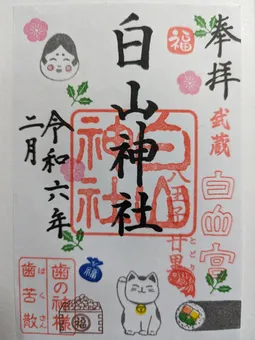 奉拝
福
武蔵
白山宮
白山神社
白山
神社
八王子廿里
とどり
令和六年
二月
歯の神様
歯苦散
はくさん
福